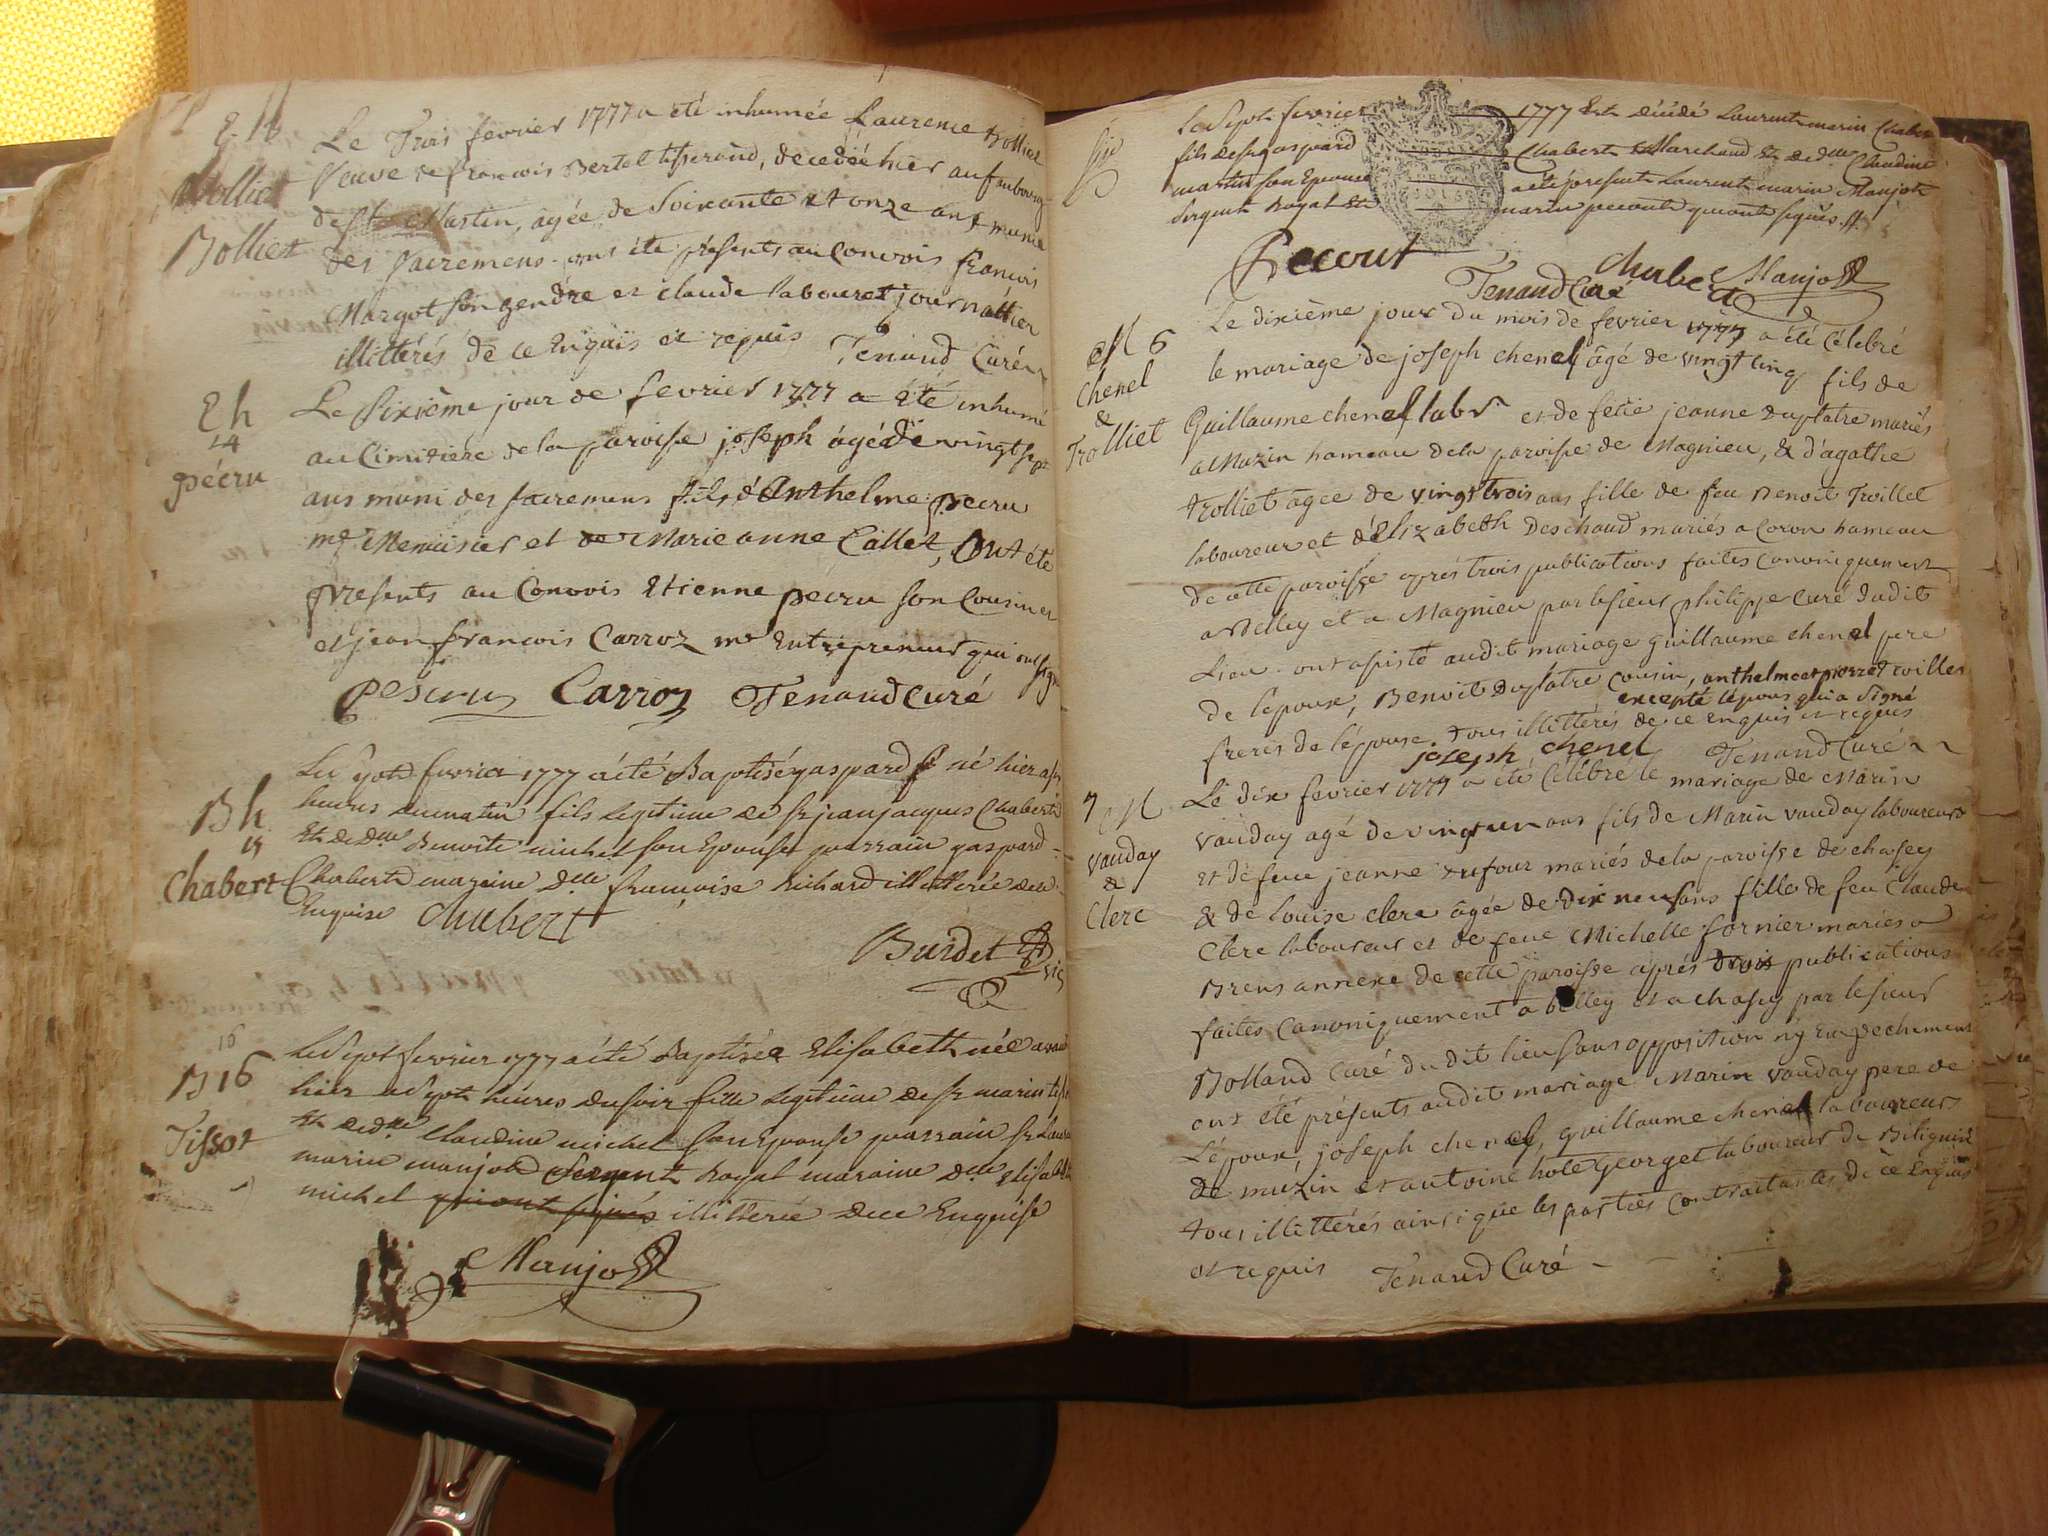 E. h
Trolliet
Bolliet
Le Trois fevrier 1777 a été inhumée Laurence Bolliet
Veuve de françois Bertet tisserand, decedée hier au faubourg
de st Martin, âgée de Soixante et onze ans munie
des sacremens. ont été présents au Convois françois
Margot son gendre et claude labouret journallier
illittérés de ce Enquis et requis Tenand Curé
Eh
14
pécru
Le Sixième jour de fevrier 1777 a été inhumé
au Cimitiere de la paroisse joseph âgé de vingt sept
ans muni des sacremens fils d'Anthelme pecru
me Menuisier et de Marie anne Callet, Ont été
présents au Convois Etienne pecru son Cousin et
et jean françois Carroz me Entrepreneur qui ont signé
Carroz Tenand Curé
Bh
15
Chabert
Le Sept fevrier 1777 a été Baptisé gaspard né hier a
heures du matin fils legitime de sr jean jacques Chabert
Et de dlle Benoite michel son Epouse parrain gaspard
Chabert maraine dlle françoise Richard illitterée de ce
Enquise Chabert
Burdet vic
16
B 16
Tissot
Le Sept fevrier 1777 a été Baptisée Elisabeth née avant
hier a Sept heures du soir fille legitime de sr marin
Et de dlle Claudine michel son Epouse parrain sr
marin manjot Sergent Royal maraine dlle Elisabeth
michel qui ont signés illitterée de ce Enquise
Manjot
Le Sept fevrier 1777 Est décédé Laurent marin Chabert
fils de sr gaspard Chabert Marchand Et de dlle Claudine
martin son Epouse a été present Laurent marin Manjot
Sergent Royal Et martin pecout qui ont signés
Pecout Chabert Manjot
Tenand Curé
M 6
Chenel
&
Trolliet
Le dixième jour du mois de fevrier 1777 a été Célebré
le mariage de joseph chenel âgé de vingt cinq fils de
Guillaume chenel labr et de feüe jeanne duplatre mariés
a Muzin hameau de la paroisse de Magnieu, & d'agathe
trolliet âgée de vingt trois ans fille de feu Benoit Trolliet
laboureur et d'Elizabeth Deschaud mariés a Coron hameau
de cette paroisse après trois publications faites canoniquement
a Belley et a Magnieu par le sieur philippe Curé dudit
Lieu. ont assisté audit mariage Guillaume chenel pere
de l'epoux, Benoit Duplatre cousin, anthelme et pierre trolliet
freres de l'épouse. tous illittérés de ce enquis et requis
excepté l'epoux qui a signé
joseph chenel Tenand Curé
7 M
Vauday
&
Clerc
Le dix fevrier 1777 a été Célebré le mariage de Marin
Vauday agé de vingt un ans fils de Marin vauday laboureur
et de feue jeanne dufour mariés de la paroisse de chasey
& de Louise clerc âgée de dix neuf ans fille de feu Claude
Clerc laboureur et de feue Michelle fornier mariés a
Brens annexe de cette paroisse après trois publications
faites Canoniquement a belley et a chasey par le sieur
Bolland Curé du dit lieu sans opposition ny Empechement
ont été présents audit mariage Marin vauday pere de
L'époux, joseph chenel, guillaume chenel laboureurs
de muzin et antoine hote Georget laboureur de Billignin
tous illittérés ainsi que les parties contractantes de ce Enquis
et requis Tenand Curé